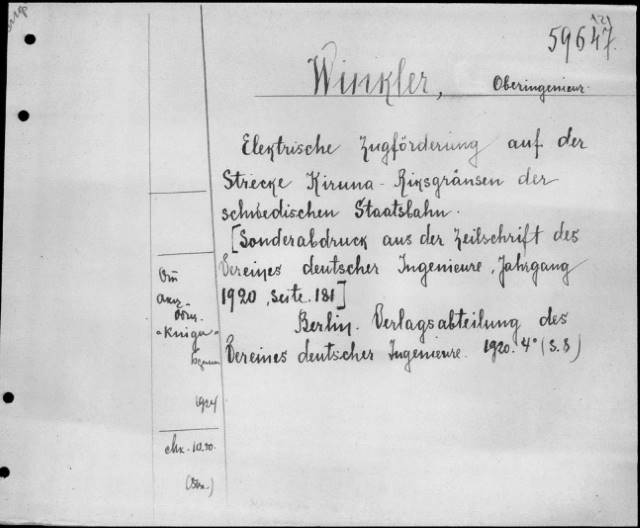 59647
(2)
Winkler, Oberingenieur.
Elektrische Zugförderung auf der
Strecke Kiruna - Riksgränsen der
schwedischen Staatsbahn.
[Sonderabdruck aus der Zeitschrift des
Vereines deutscher Ingenieure, Jahrgang
1920, Seite 181]
Berlin. Verlagsabteilung des
Vereines deutscher Ingenieure. 1920. 4° (S. 8)
"Kniga"
1924